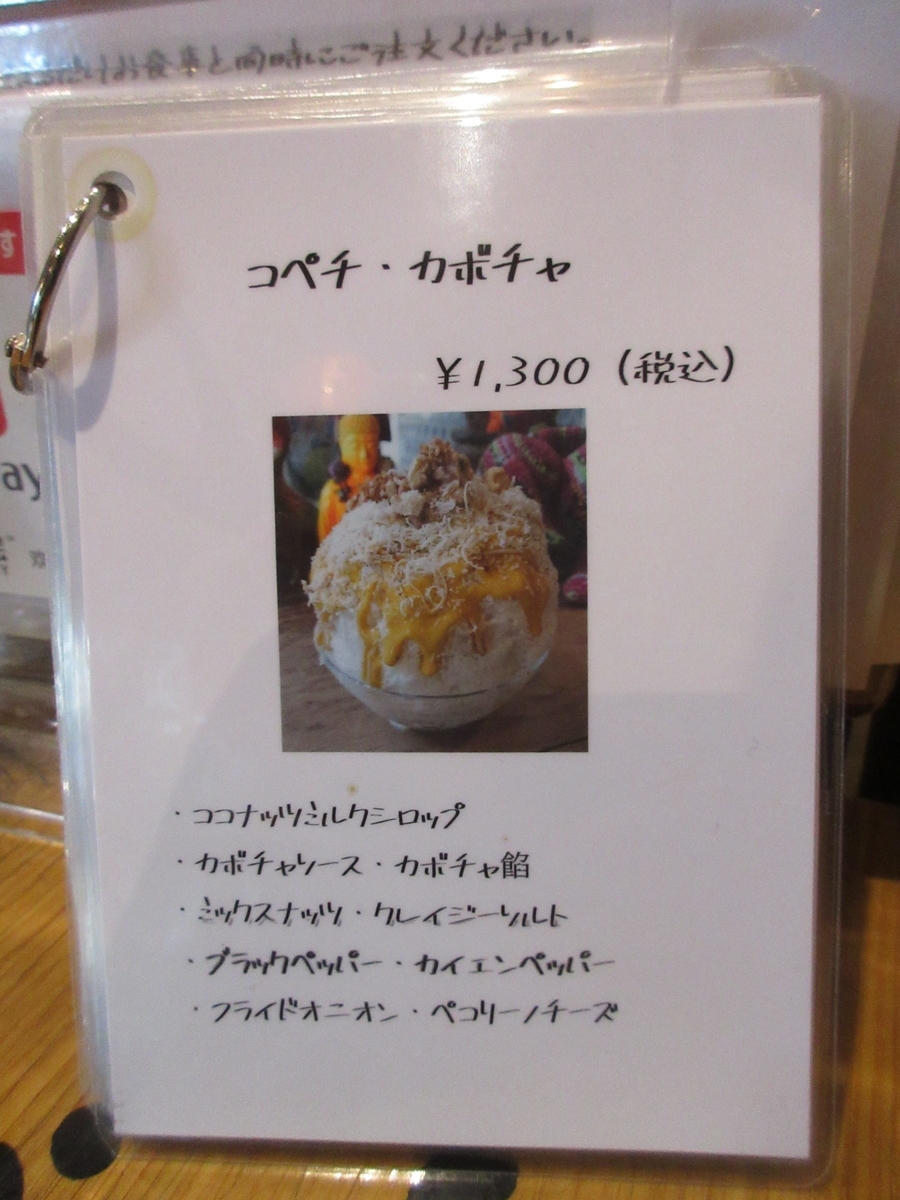 お食事と同時にご注文ください。
す
ay
コペチ・カボチャ
¥1,300（税込）
・ココナッツミルクシロップ
・カボチャソース・カボチャ餡
・ミックスナッツ・クレイジーソルト
・ブラックペッパー・カイエンペッパー
・フライドオニオン・ペコリーノチーズ